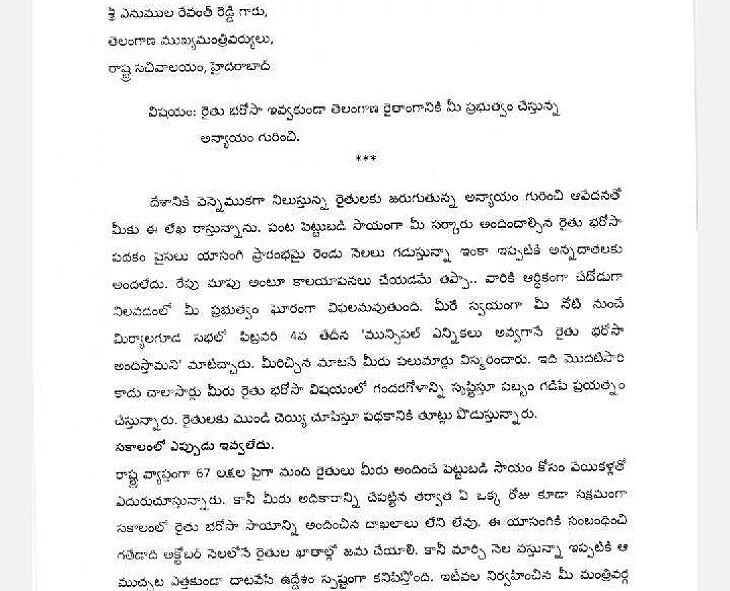 శ్రీ ఎనుముల రేవంత్ రెడ్డి గారు,
తెలంగాణ ముఖ్యమంత్రివర్యులు,
రాష్ట్ర సచివాలయం, హైదరాబాద్
విషయం: రైతు భరోసా ఇవ్వకుండా తెలంగాణ రైతాంగానికి మీ ప్రభుత్వం చేస్తున్న
అన్యాయం గురించి.
***
దేశానికి వెన్నెముకగా నిలుస్తున్న రైతులకు జరుగుతున్న అన్యాయం గురించి ఆవేదనతో
మీకు ఈ లేఖ రాస్తున్నాను. పంట పెట్టుబడి సాయంగా మీ సర్కారు అందించాల్సిన రైతు భరోసా
పథకం పైసలు యాసంగి ప్రారంభమై రెండు నెలలు గడుస్తున్నా ఇంకా ఇప్పటికీ అన్నదాతలకు
అందలేదు. రేపు మాపు అంటూ కాలయాపనలు చేయడమే తప్పా.. వారికి ఆర్థికంగా చేదోడుగా
నిలవడంలో మీ ప్రభుత్వం ఘోరంగా విఫలమవుతుంది. మీరే స్వయంగా మీ నోటి నుంచే
మిర్యాలగూడ సభలో ఫిబ్రవరి 4వ తేదీన 'మున్సిపల్ ఎన్నికలు అవ్వగానే రైతు భరోసా
అందిస్తామని' మాటిచ్చారు. మీరిచ్చిన మాటనే మీరు పలుమార్లు విస్మరించారు. ఇది మొదటిసారి
కాదు చాలాసార్లు మీరు రైతు భరోసా విషయంలో గందరగోళాన్ని సృష్టిస్తూ పబ్బం గడిపే ప్రయత్నం
చేస్తున్నారు. రైతులకు మొండి చెయ్యి చూపిస్తూ పథకానికి తూట్లు పొడుస్తున్నారు.
సకాలంలో ఎప్పుడు ఇవ్వలేదు.
రాష్ట్ర వ్యాప్తంగా 67 లక్షల పైగా మంది రైతులు మీరు అందించే పెట్టుబడి సాయం కోసం వేయికళ్లతో
ఎదురుచూస్తున్నారు. కానీ మీరు అధికారాన్ని చేపట్టిన తర్వాత ఏ ఒక్క రోజు కూడా సక్రమంగా
సకాలంలో రైతు భరోసా సాయాన్ని అందించిన దాఖలాలు లేనే లేవు. ఈ యాసంగికి సంబంధించి
గతేడాది అక్టోబర్ నెలలోనే రైతుల ఖాతాల్లో జమ చేయాలి. కానీ మార్చి నెల వస్తున్నా ఇప్పటికీ ఆ
ముచ్చట ఎత్తకుండా దాటవేసే ఉద్దేశం స్పష్టంగా కనిపిస్తోంది. ఇటీవల నిర్వహించిన మీ మంత్రివర్గ